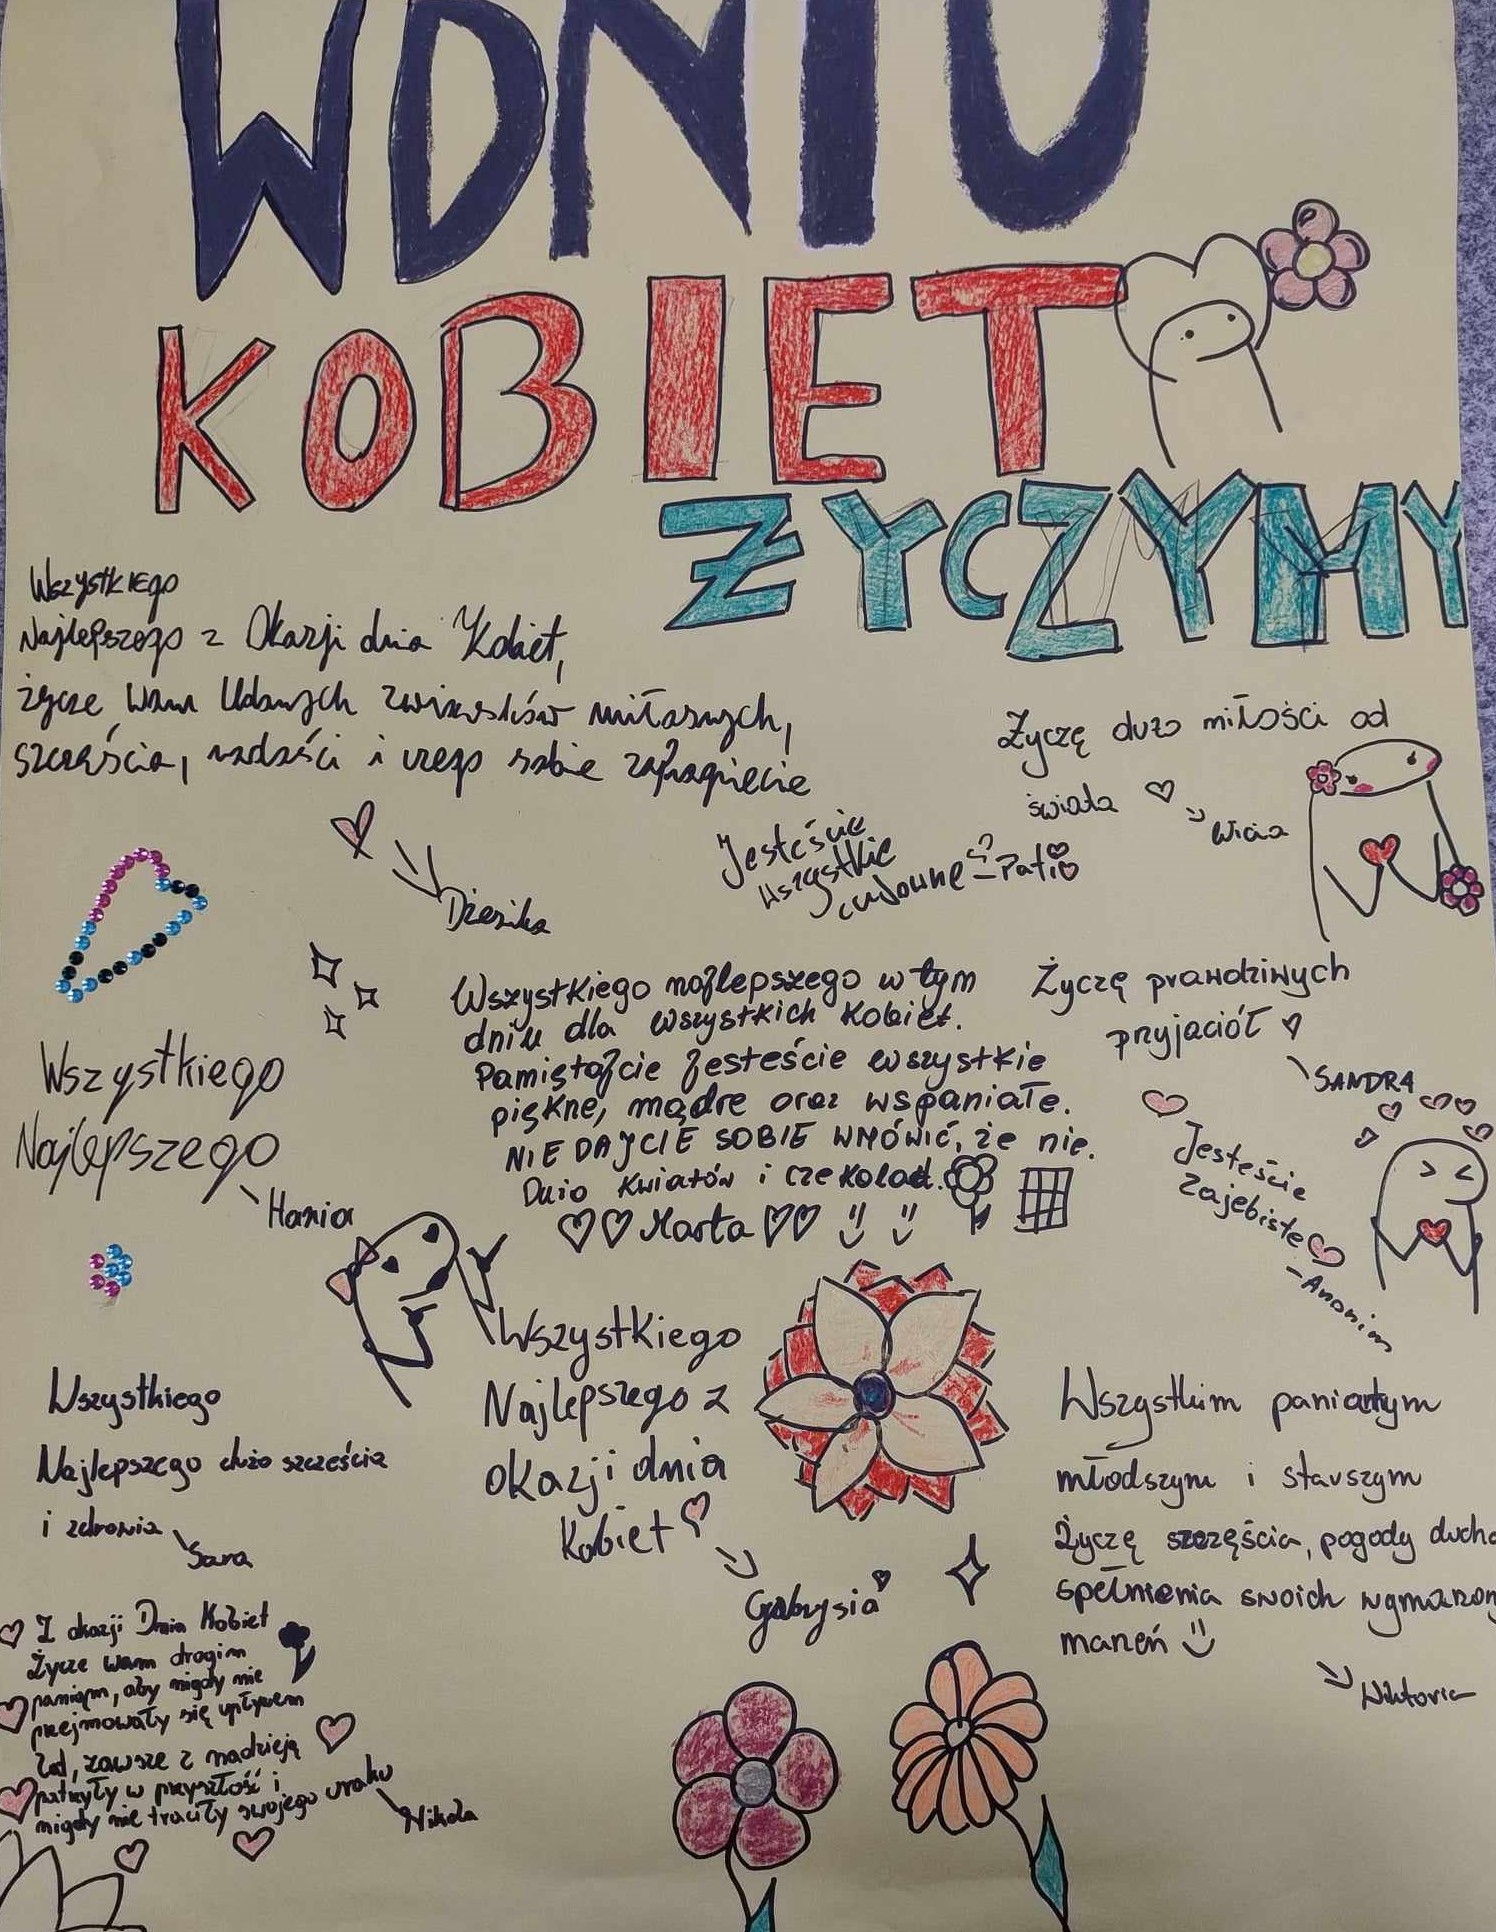 W DNIU
KOBIET
ŻYCZYMY
Wszystkiego
Najlepszego z Okazji dnia Kobiet,
życzę wam Udanych związków miłosnych,
szczęścia, radości i czego sobie zapragniecie
Dżesika
Życzę dużo miłości od
świata
Wicia
Jesteście
wszystkie
cudowne
-Pati
Wszystkiego najlepszego w tym
dniu dla wszystkich kobiet.
Pamiętajcie Jesteście wszystkie
piękne, mądre oraz wspaniałe.
NIE DAJCIE SOBIE WMÓWIĆ, że nie.
Dużo kwiatów i czekolad.
Marta
Życzę prawdziwych
przyjaciół
SANDRA
Jesteście
Zajebiste
-Anonim
Wszystkiego
Najlepszego
Hania
Wszystkiego
Najlepszego z
okazji dnia
Kobiet
Gabrysia
Wszystkiego
Najlepszego dużo szczęścia
i zdrowia
Sara
Wszystkim
młodszym i starszym
Życzę szczęścia, pogody ducha
spełnienia swoich
marzeń
Wiktoria
Z okazji Dnia Kobiet
Życzę wam drogim
paniąm, aby nigdy nie
przejmowały się upływem
lat, zawsze z nadzieją
patrzyły w przyszłość i
nigdy nie traciły swojego uroku
Nikola